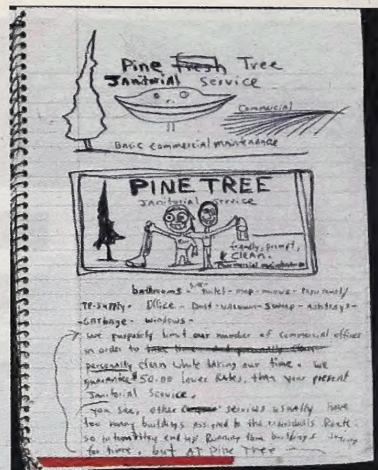 Pine fresh Tree
JANitoRiAl Service
Commercial
BASIC commercial maintenance
PINE TREE
Janitorial service
friendly, prompt,
& CLEAN.
Commercial maintenance
bathrooms toilet - mop - mirrors - Paper towel/
TP-supply - Office - Dust - vacuum - sweep - ashtrays -
- GARbage - windows -
we purposely limit our number of commercial offices
in order to
personally clean while taking our time. we
guarantee $50.00 lower Rates, than your present
Janitorial Service.
you see, other services usually have
too many buildings assigned to the individuals Route
so they end up Running from buildings
for time. but AT Pine Tree